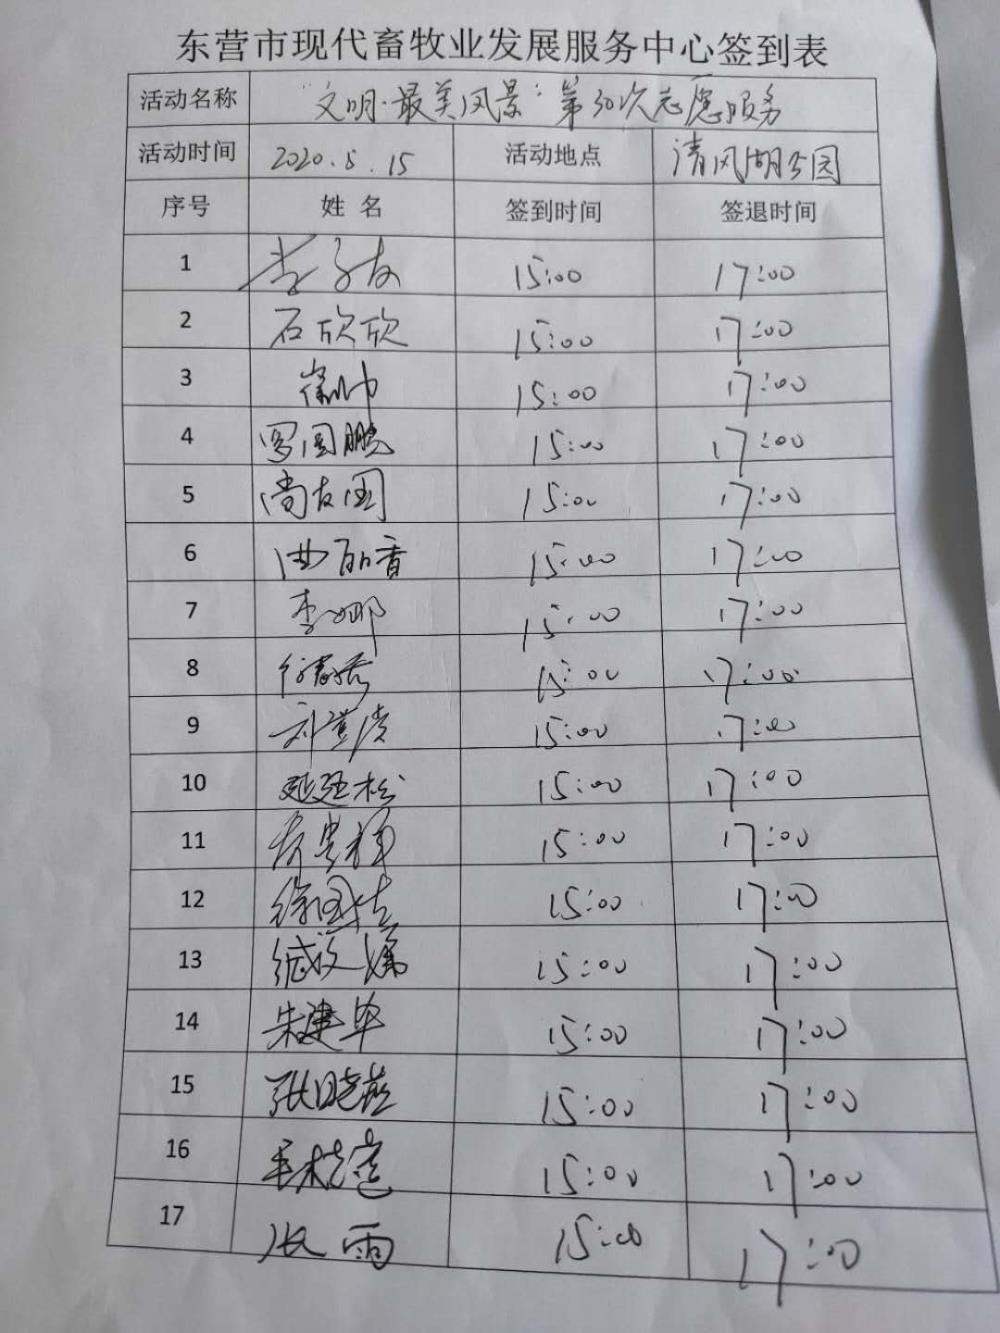 东营市现代畜牧业发展服务中心签到表
活动名称 “文明·最美风景”第30次志愿服务
活动时间 2020.5.15 活动地点 清风湖公园
序号 姓名 签到时间 签退时间
1 李子友 15:00 17:00
2 石欣欣 15:00 17:00
3 崔帅 15:00 17:00
4 罗国鹏 15:00 17:00
5 尚友国 15:00 17:00
6 曲丽香 15:00 17:00
7 李娜 15:00 17:00
8 15:00 17:00
9 刘 15:00 17:00
10 延廷松 15:00 17:00
11 15:00 17:00
12 徐国 15:00 17:00
13 15:00 17:00
14 朱建华 15:00 17:00
15 张晓燕 15:00 17:00
16 15:00 17:00
17 张雨 15:00 17:00